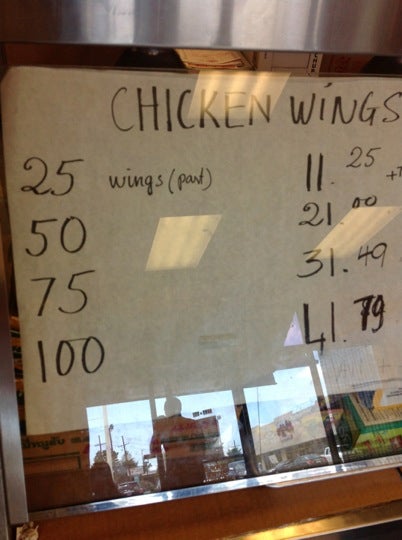 CHICKEN WINGS
25 wings (part) 11.25 +T
50 21.00
75 31.49
100 41.79